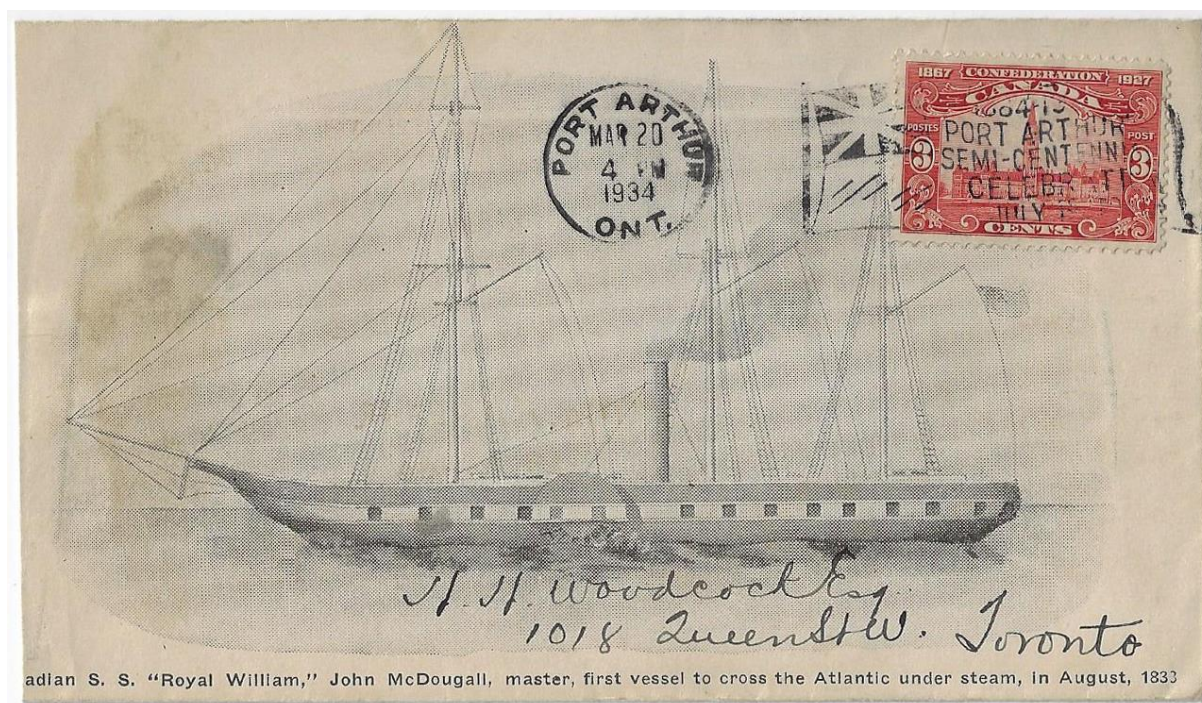 PORT ARTHUR
MAR 20
4 PM
1934
ONT.
1867 CONFEDERATION 1927
CANADA
POSTES POST
3 3
CENTS
PORT ARTHUR
SEMI-CENTENN
CELEBR
JULY
H. H. Woodcock Esq
1018 Queen St W. Toronto
adian S. S. "Royal William," John McDougall, master, first vessel to cross the Atlantic under steam, in August, 1833